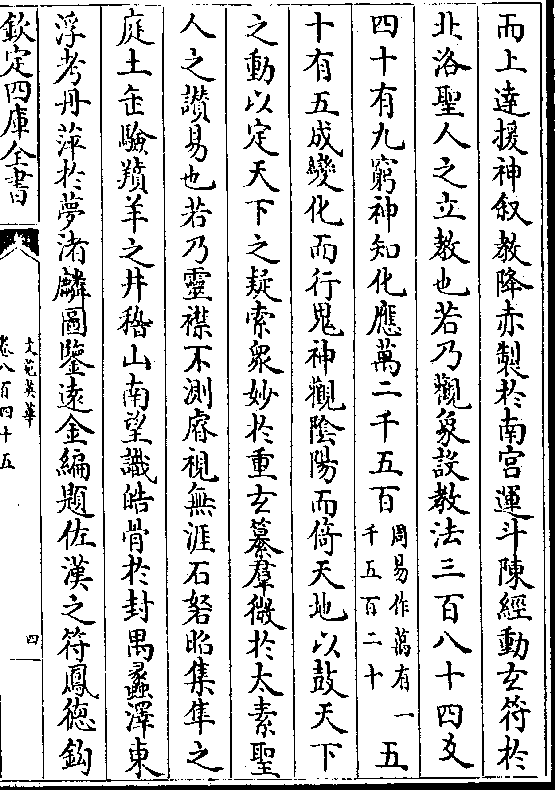 而上達援神叙教降赤製於南宮運斗陳經動玄符於
北洛聖人之立教也若乃觀象設教法三百八十四爻
四十有九窮神知化應萬二千五百周易作萬有一千五百二十五
十有五成變化而行鬼神觀陰陽而倚天地以鼓天下
之動以定天下之疑索衆妙於重玄纂羣微於太素聖
人之讚易也若乃靈襟不測睿視無涯石砮昭集隼之
庭土缶驗羵羊之井稽山南望識皓骨於封禺蠡澤東
浮考丹萍於夢渚麟圖鑒遠金編題佐漢之符鳳德鈎
欽定四庫全書
文苑英華
卷八百四十五
四